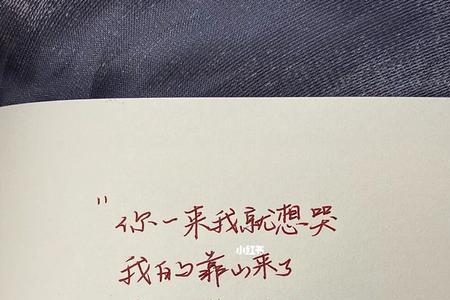 "你一来我就想哭
小红书
我的靠山来了